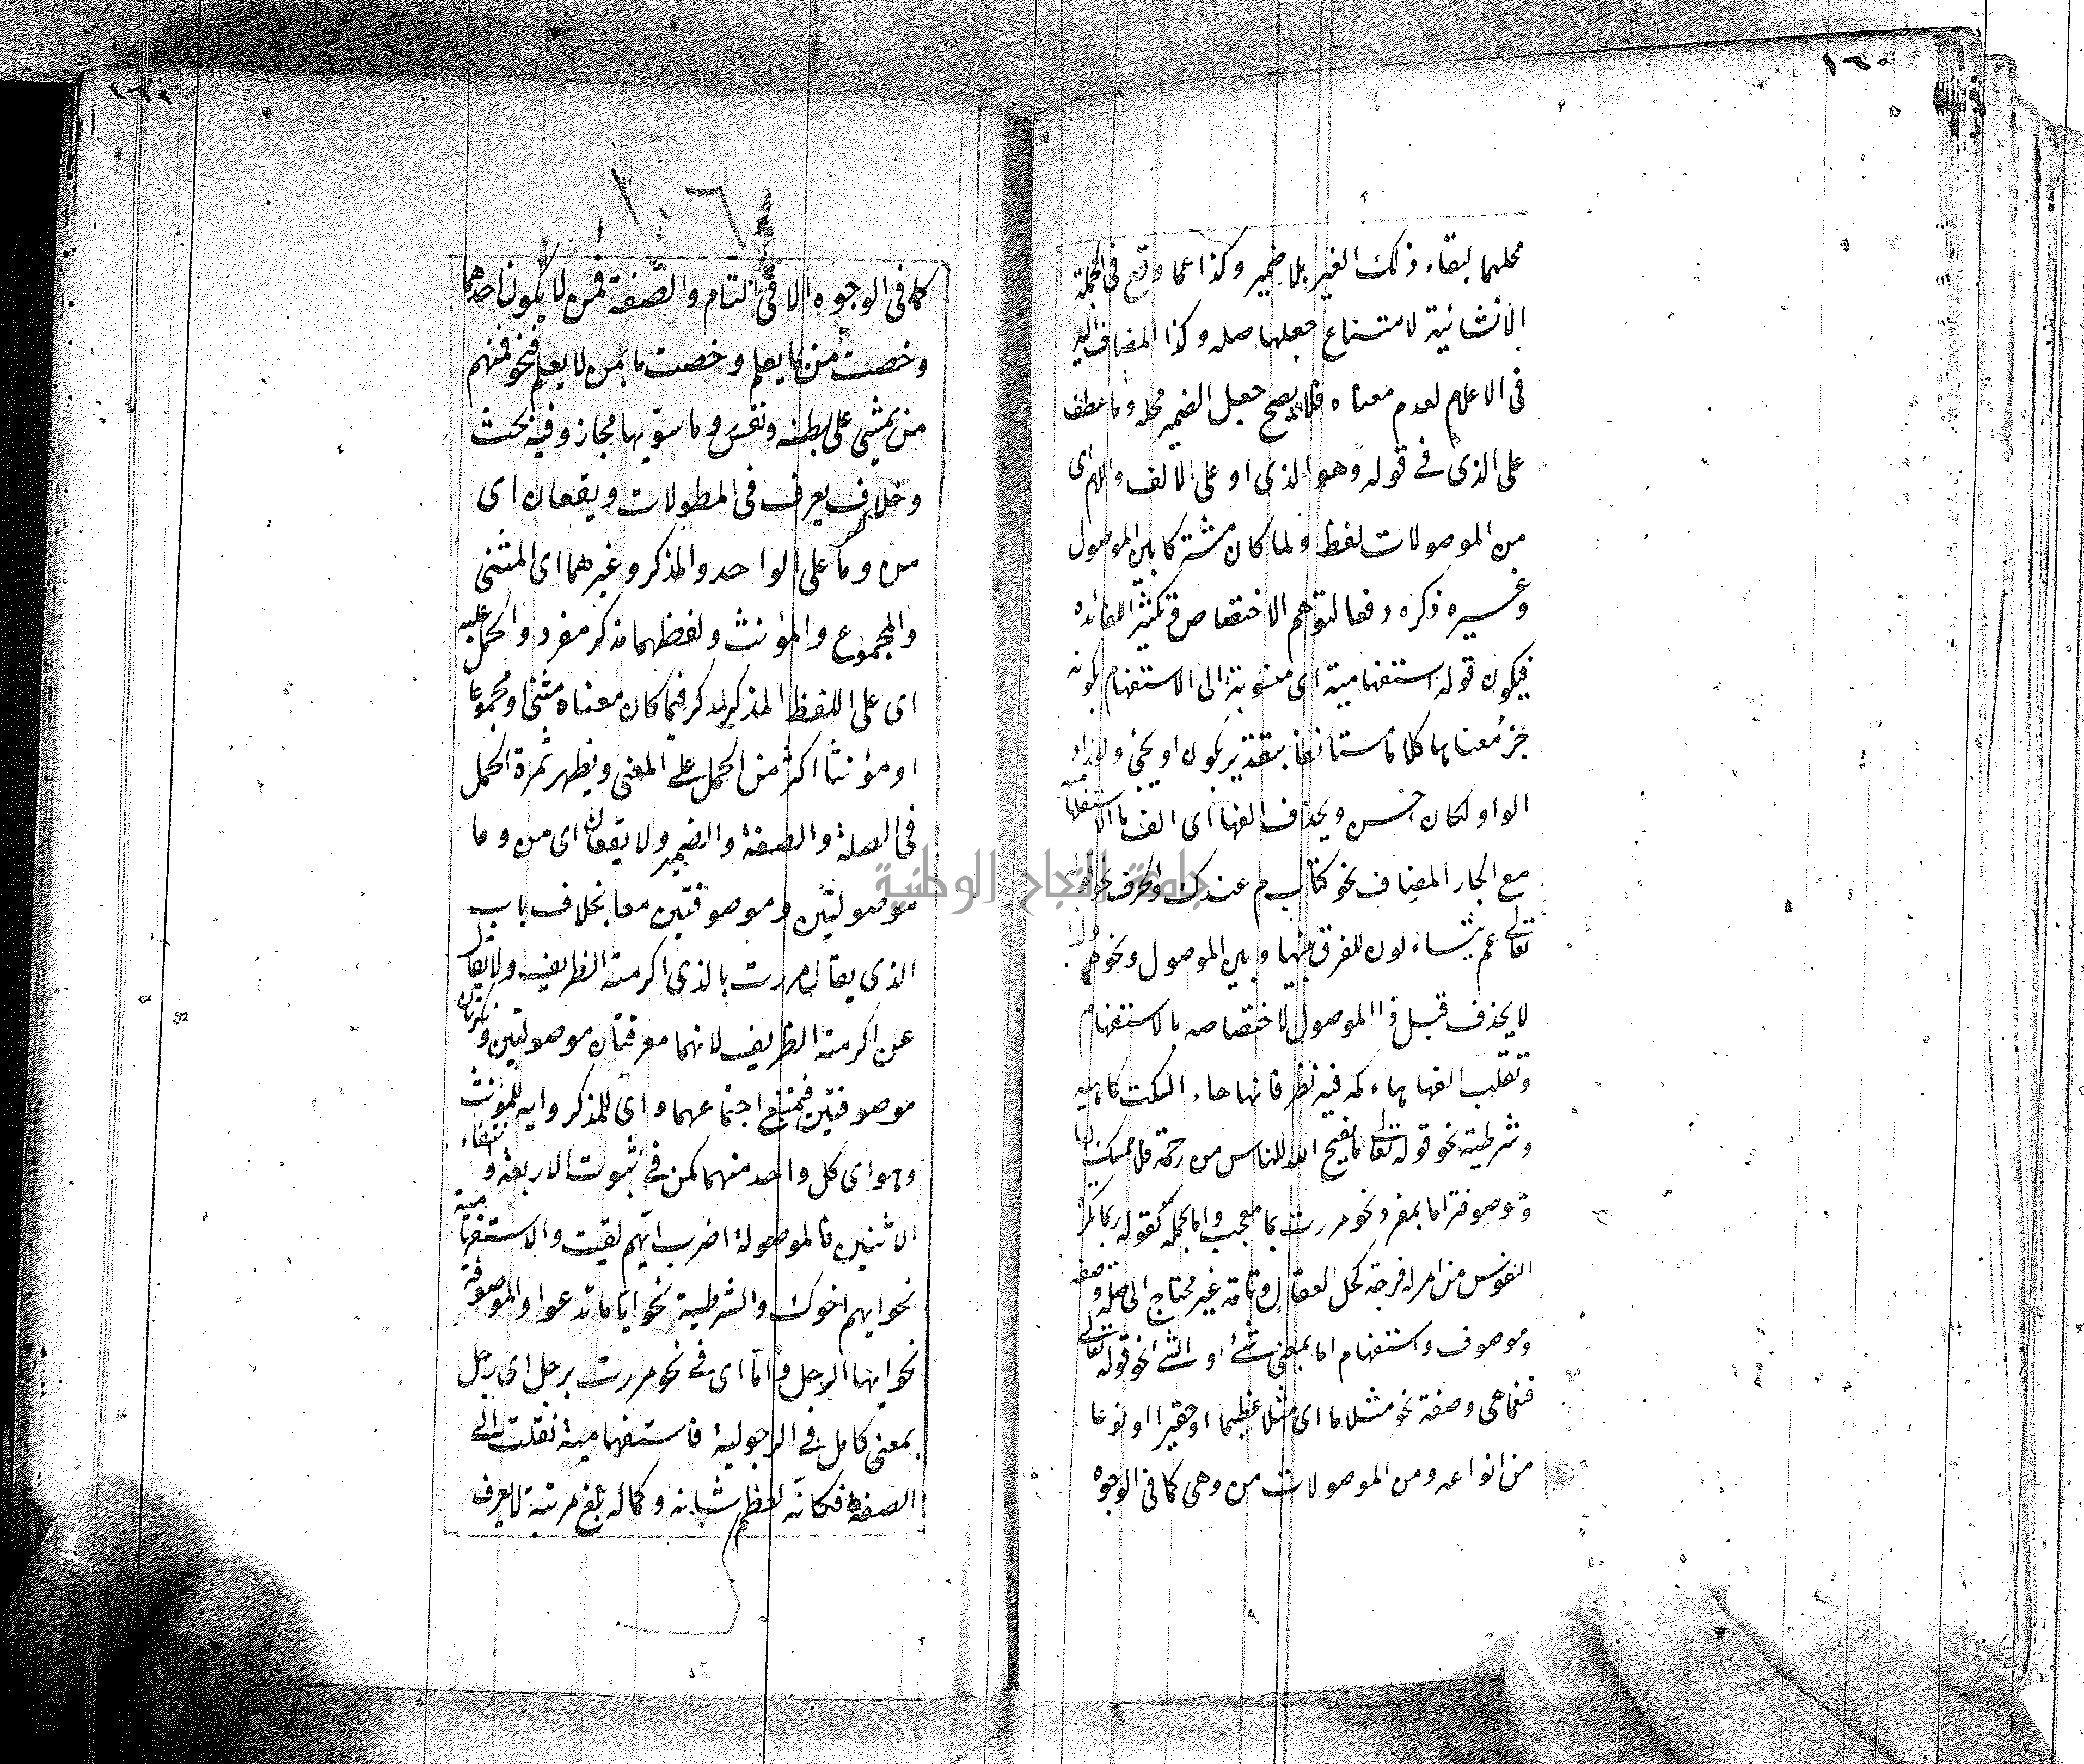 ١٦٠
محلهما لبقاء ذلك الغير بلا ضمير وكذا عما وقع في الجملة
الانشائية لامتناع جعلها صله وكذا المضاف اليه
في الاعلام لعدم معناه فلا يصح جعل الضمير محله وما عطف
على الذي في قوله وهو الذي او على الالف واللام اى
من الموصولات لفظ ولما كان مشتركا بين الموصول
وغيره ذكره دفعا لتوهم الاختصاص وتكثير الفائده
فيكون قوله استفهامية اى منسوبة الى الاستفهام بكونه
جزء معناها كلاما مستانفا بتقدير يكون او يجئ ولو زاد
الواو لكان احسن ويحذف الفها اى الف ما الاستفهامية
مع الجار المضاف نحو كتاب م عندك والحرف نحو قوله
تعالى عم يتساءلون للفرق بينها وبين الموصول ونحو
لا يحذف قبل ذا الموصول لاختصاصه بالاستفهام
وتقلب الفها هاء كمه فيه نظر فانها هاء السكت كما هيه
وشرطية نحو قوله تعالى ما يفتح الله للناس من رحمة فلا ممسك لها
وموصوفة اما بمفرد نحو مررت بما معجب واما بجملة كقوله ربما تكره
النفوس من امر له فرجة كحل العقال وتامة غير محتاج الى صلة وصفه
وموصوف واستفهام اما بمعنى شئ او الشئ نحو قوله تعالى
فنعما هي وصفة نحو مثلا ما اى مثلا عظيما او حقيرا او نوعا
من انواعه ومن الموصولات من وهي كما في الوجوه
١٠٦
كما في الوجوه الا في التام والصفة فمن لا يكون احدهما
وخصت من بما يعلم وخصت ما بمن لا يعلم فنحو فمنهم
من يمشي على بطنه ونفس وما سويها مجاز وفيه بحث
وخلاف يعرف في المطولات ويقعان اى
من وما على الواحد والمذكر وغيرهما اى المثنى
والمجموع والمؤنث ولفظهما مذكر مفرد والحمل عليه
اى على اللفظ المذكر فيما كان معناه مثنى او مجموعا
او مؤنثا اكثر من الحمل على المعنى ويظهر ثمرة الحمل
في الصلة والصفة والضمير ولا يقعان اى من وما
موصولتين وموصوفتين معا بخلاف باب
الذي يقال مررت بالذي اكرمته الظريف ولا يقال
عن اكرمته الظريف لانهما معرفتان موصولتين ونكرتان
موصوفتين فيمتنع اجتماعهما واى للمذكر وايه للمؤنث
وهو اى كل واحد منهما كمن في ثبوت الاربعة وانتفاء
الاثنين فالموصولة اضرب ايهم لقيت والاستفهامية
نحو ايهم اخوك والشرطية نحو اياما تدعوا والموصوفة
نحو ايها الرجل واما اى في نحو مررت برجل اى رجل
بمعنى كامل في الرجولية فاستفهامية نقلت الى
الصفة فكانه لعظم شانه وكماله بلغ مرتبة لا يعرف
جامعة النجاح الوطنية